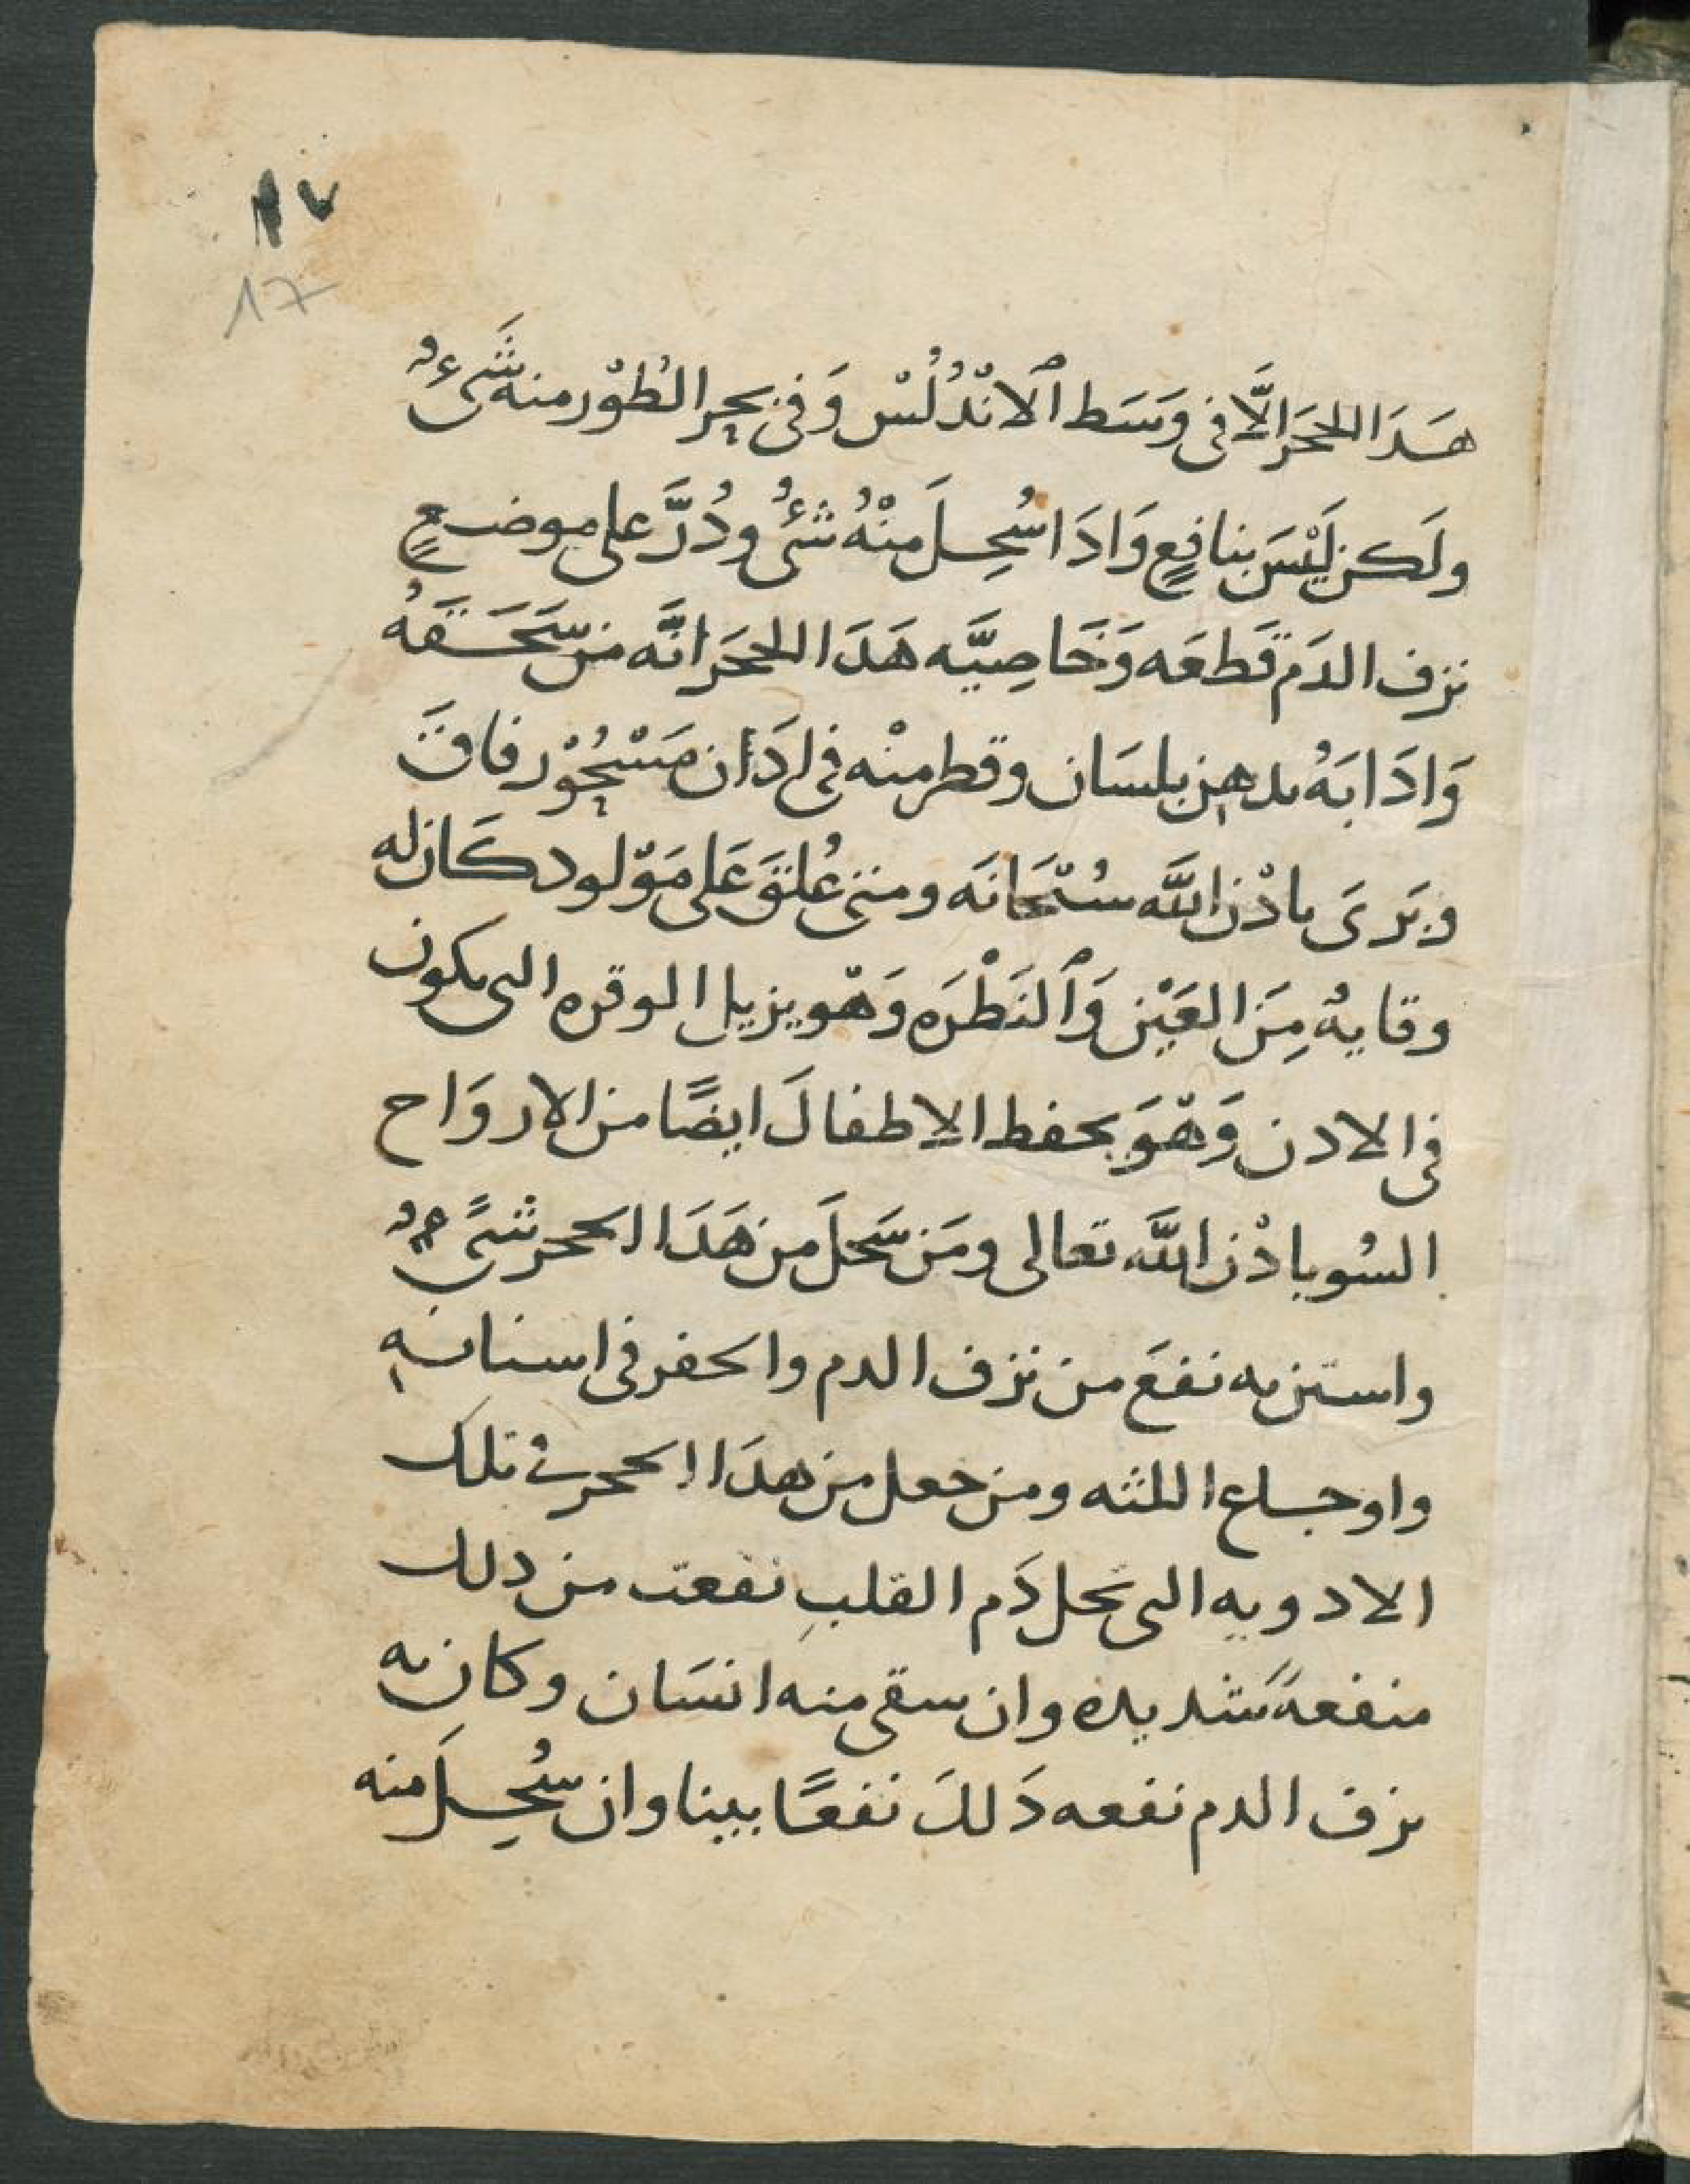 ١٧
17
هَدَا الحجَر الَّا فى وَسَط ٱلانْدُلُسْ وَفى بحر الطُوْر منه شَىءُ
ولَكن لَيْسَ بنافعٍ وَادَا سُحِلَ منْهُ شىءُ ودُرَّ على موضعٍ
نزف الدَم قَطعَه وَخَاصِيَّه هَدَا الحجَر انَّه من سَحَقَهُ
وَادَابَهُ بدهن بلسَان وقطر منْه فى ادَان مَسْحُوْر فاقَ
وبَرىَ بادْن اللَّه سُبْحَانَه ومتى عُلقَ عَلى مَوْلود كَان له
وقايهُ مِنَ العَيْن وَٱلنَطْرَه وَهْو يزيل الوقره التى يكون
فى الادن وَهْوَ يحفط الاطفالَ ايضًا من الاروَاح
السُو بادْن اللَّه تعالى ومَن سَحَلَ من هَدَا الححر شىًءُ
واستن به نفعَ من نزف الدم والحفر فى اسنانه
واوجاع اللثه ومن جعل من هدَا الححر فى تلك
الادويه التى تحل دَم القلبِ نفعت من دلك
منفعهَ شديده وان سقى منه انسَان وكان به
نزف الدم نفعه دَلكَ نفعًا بينا وان سُحِلَ منه